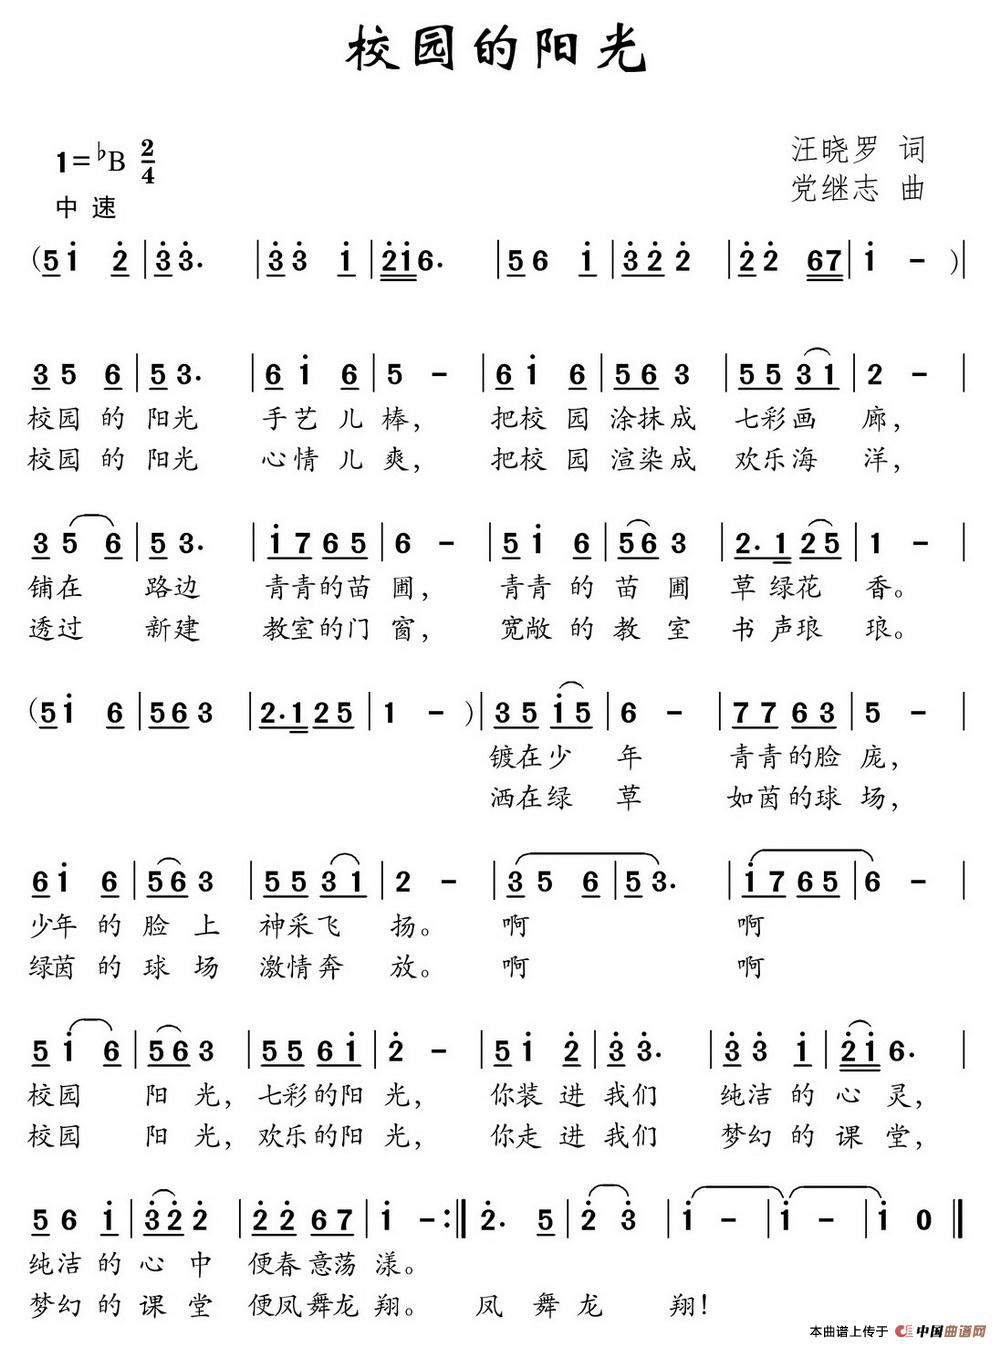 校园的阳光
1=♭B 2/4
汪晓罗 词
中 速
党继志 曲
(5i 2|33. |33 i|2i6. |56 i|322|22 67|i -)|
35 6|53. |6i 6|5 -|6i 6|566 3|55 31|2 -|
校园 的 阳光 手艺 儿 棒， 把校 园 涂抹成 七彩画 廊，
校园 的 阳光 心情 儿 爽， 把校 园 渲染成 欢乐海 洋，
35 6|53. |i7 65|6 -|5i 6|56 3|2. 1 25|1 -|
铺在 路边 青青的苗 圃， 青青 的 苗 圃 草 绿花 香。
透过 新建 教室的门 窗， 宽敞 的 教 室 书 声琅 琅。
(5i 6|563|2.125|1 -)|35 i5|6 -|77 63|5 -|
镀在少 年 青青的脸 庞，
洒在绿 草 如茵的球 场，
6i 6|563|55 31|2 -|35 6|53. |i7 65|6 -|
少年 的 脸 上 神采飞 扬。 啊 啊
绿茵 的 球 场 激情奔 放。 啊 啊
5i 6|563|55 6i|2 -|5i 2|33. |33 i|2i6. |
校园 阳 光，七彩的阳 光， 你装 进 我们 纯洁 的 心 灵，
校园 阳 光，欢乐的阳 光， 你走 进 我们 梦幻 的 课 堂，
56 i|322|22 67|i -:‖2. 5|2 3|i -|i -|i 0‖
纯洁 的 心 中 便春意荡 漾。
梦幻 的 课 堂 便凤舞龙 翔。 凤 舞 龙 翔！
本曲谱上传于 中国曲谱网